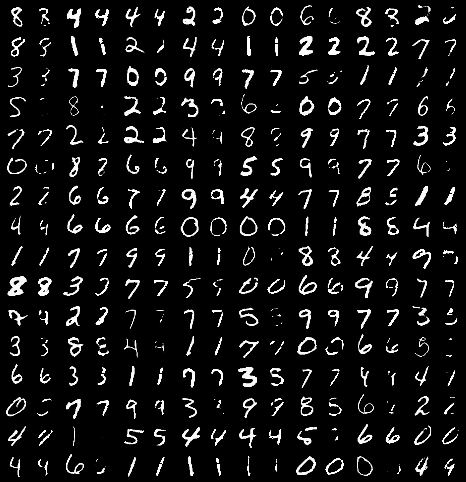 8 8 4 4 4 4 2 2 0 0 6 6 8 8 2
8 8 1 1 2 4 4 1 1 2 2 2 2 7 7
3 3 7 7 0 0 9 9 7 7 5 5 1 1 1 1
5 8 2 2 3 6 0 0 7 7 6 6
7 7 2 2 2 2 4 4 8 9 9 7 7 3 3
0 8 8 6 6 9 9 5 5 9 9 7 7 6
2 2 6 6 7 7 9 9 4 4 7 7 8 5 1 1
4 4 6 6 6 6 0 0 0 0 1 1 8 8 4 4
1 1 7 7 9 9 1 1 0 8 8 4 4 9
8 8 3 3 7 7 5 5 0 0 6 6 9 9 7 7
9 2 2 7 7 7 7 5 9 9 7 7 3 3
3 3 8 8 4 4 1 1 7 7 0 0 6 6 5
6 6 3 3 1 1 7 7 3 5 7 7 4 4 4 1
0 7 7 9 9 3 9 9 8 5 6 2 2
4 4 1 5 5 4 4 4 4 5 6 6 0 0
4 4 6 1 1 1 1 1 1 0 0 0 4 4